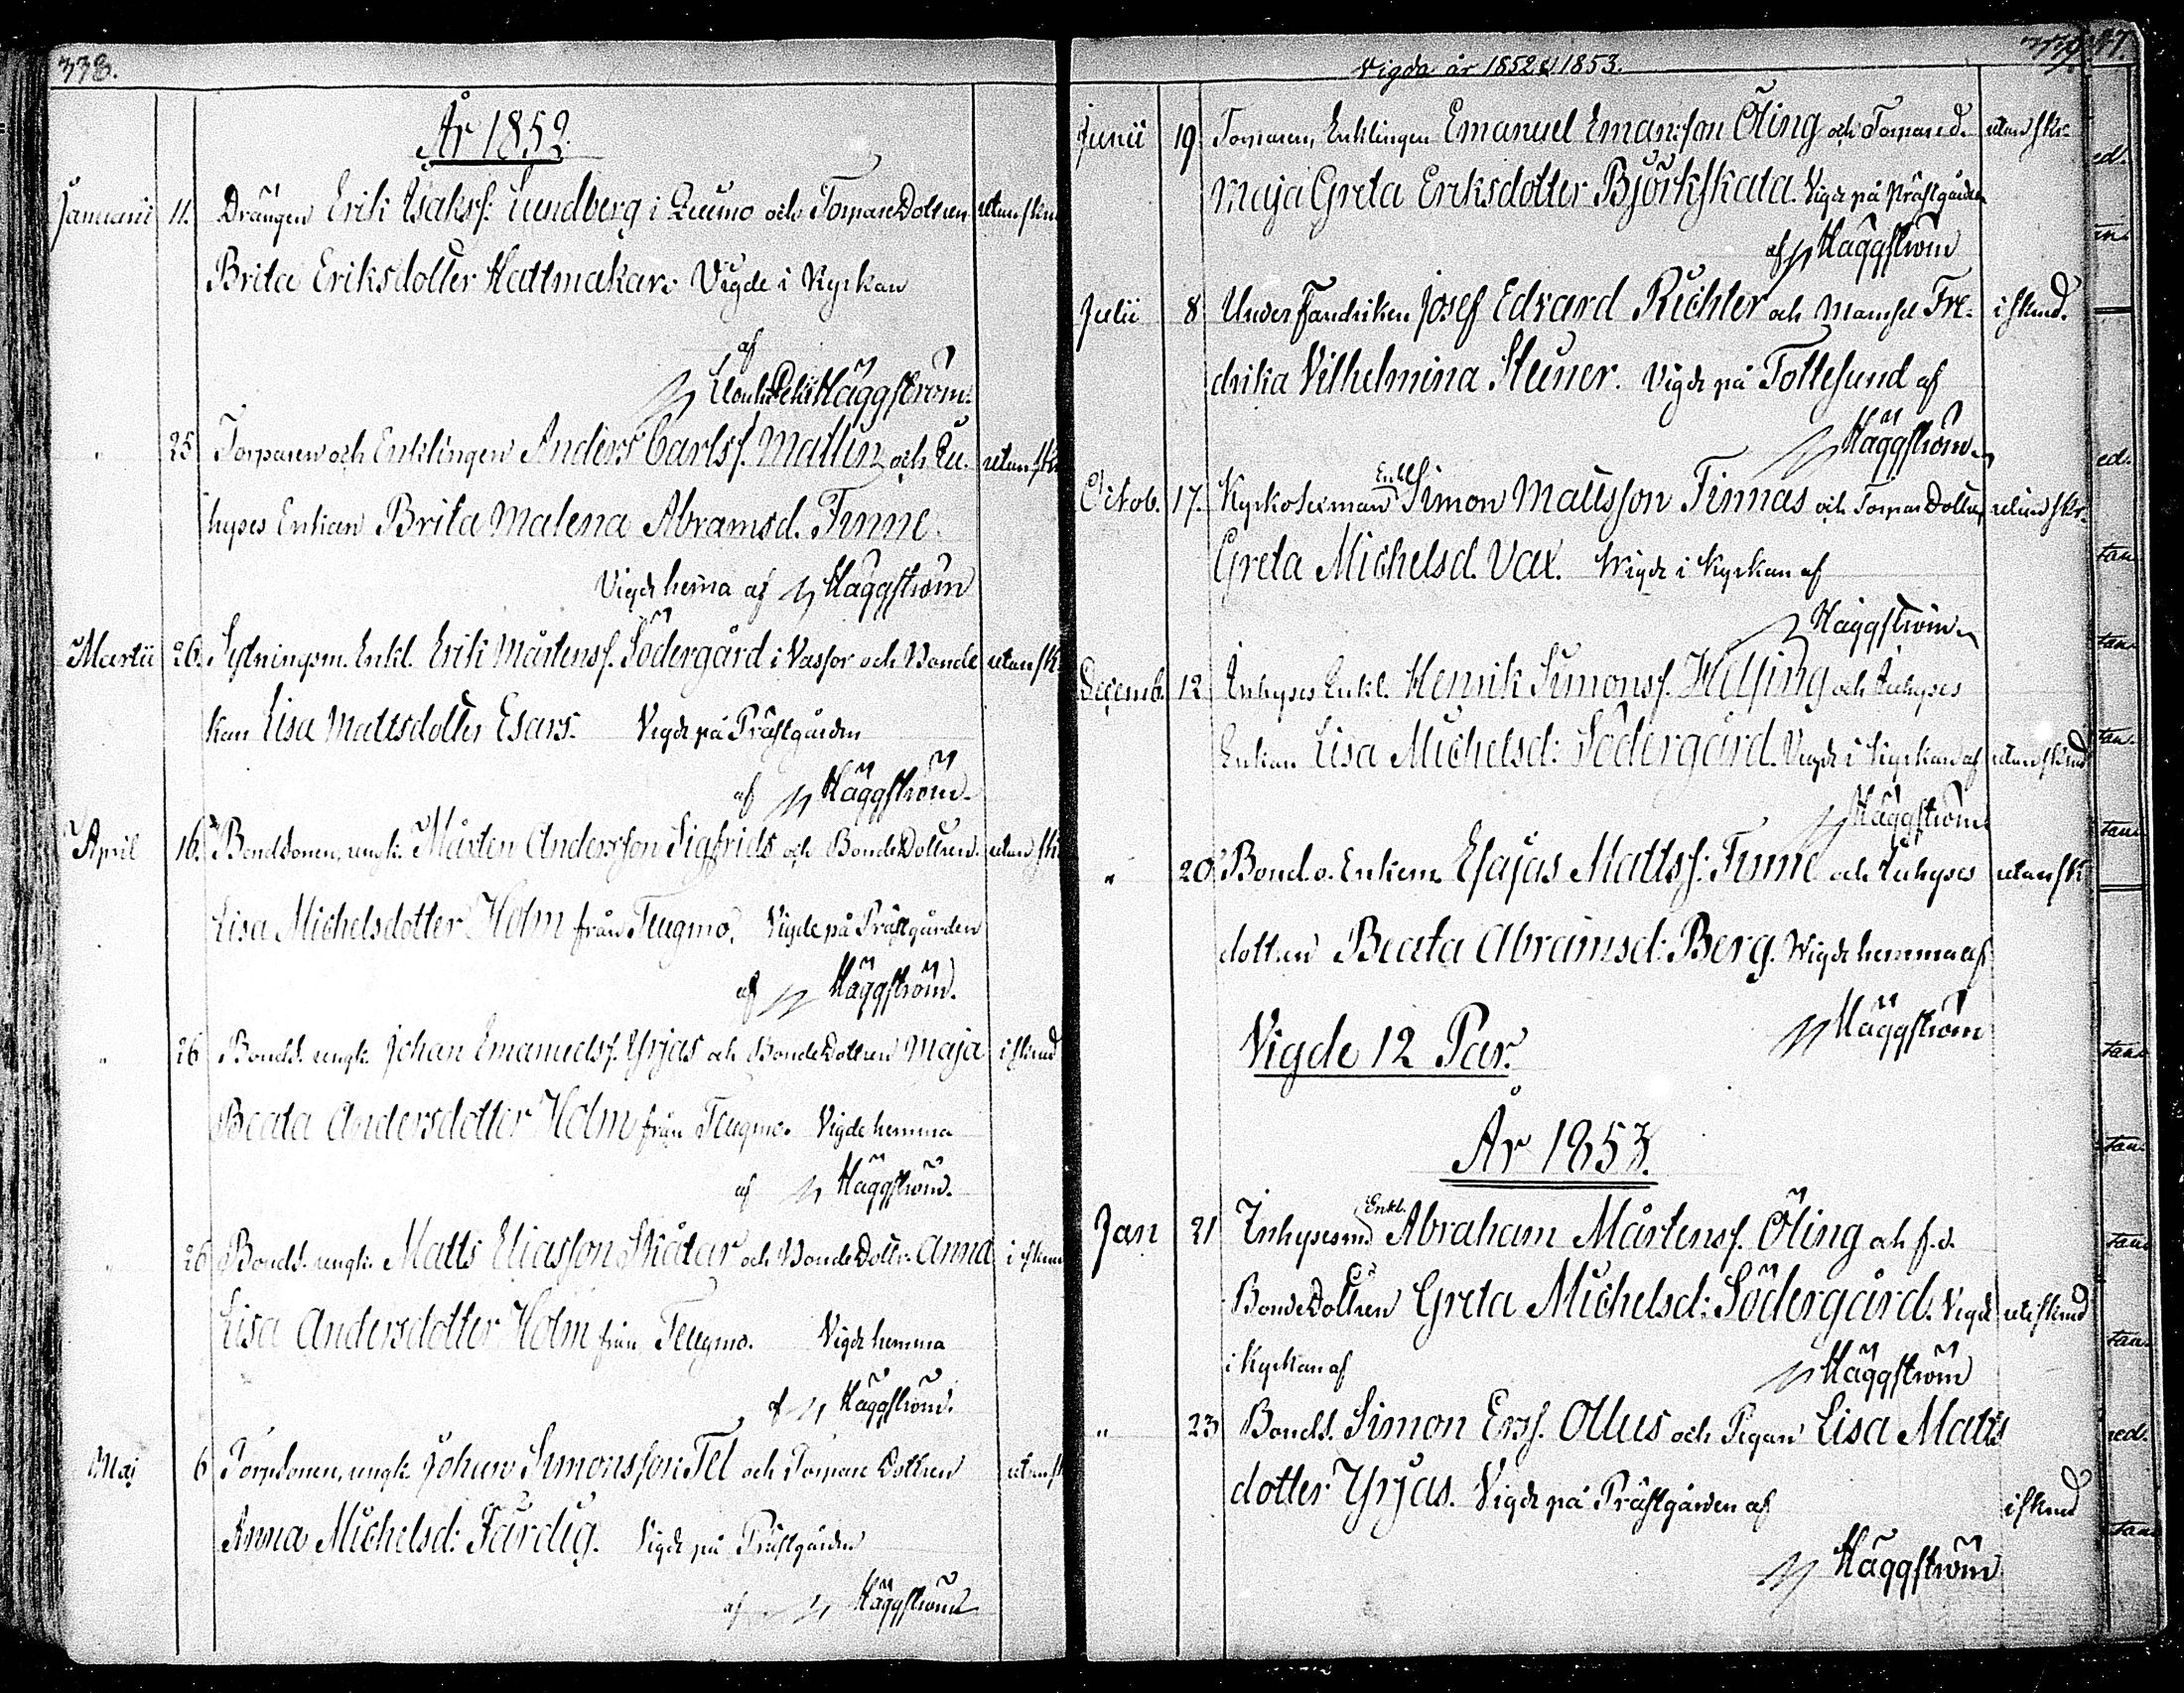 338.
År 1852.
Januarii 11. Drängen Erik Isaksf: Lundberg i Qvimo och TorpareDottren utan skm
Brita Eriksdotter Hattmakar. Vigde i Kyrkan
af
Häggström.
" 25 Torparen och Enklingen Anders Carlsf. Mallin och In- utan sk
hyses Enkan Brita Malena Abramsd. Finne.
Vigde hema af Häggström
Martii 26. Sytningsm. Enkl. Erik Mårtensf. Södergård i Vassor och Bonde utan sk
kan Lisa Mattsdotter Esars. Vigde på Prästgården
af Häggström.
April 16. BondSonen, ungk. Mårten Andersson Sigfrids och BondeDottren utan sk
Lisa Michelsdotter Holm från Teugmo. Vigde på Prästgården
af Häggström.
" 26 BondS. ungk. Johan Emanuelsf. Yrjas och BondeDottren Maja i skmd
Beata Andersdotter Holm från Teugmo. Vigde hemma
af Häggström.
" 26 BondS. ungk. Matts Eliasson Skåtar och BondeDottr. Anna i skm
Lisa Andersdotter Holm från Teugmo. Vigde hemma
af Häggström.
Maj 6 TorpSonen, ungk Johan Simonsson Tel och Torpare Dottren utan sk
Anna Michelsd: Färdig. Vigde på Prästgården
af Häggström
Vigda år 1852 & 1853.
Junii 19 Torparen, Enklingen Emanuel Emanson Öling och Torpared. utan skr
Maja Greta Eriksdotter Björkskata. Vigde på Prästgården
af Häggström
Julii 8 UnderFändriken Josef Edvard Richter och Mamsel Fre- i skmd.
drika Vilhelmina Steiner. Vigde på Tottesund af
Häggström
Octob. 17. Enkl. Simon Mattsson Finnas och TorpareDottren utan skr.
Greta Michelsd. Vax. Wigde i Kyrkan af
Häggström
Decemb. 12 Inhyses Enkl. Henrik Simonsf. Helsing och Inhyses
Enkan Lisa Michelsd: Södergård. Vigde i Kyrkan af utan skmd
Häggström
" 20 Bond. o. Enkem. Esajas Mattsf: Finne och Inhyses utan sk
dottren Beata Abramsd: Berg. Wigde hemma af
Häggström
Vigde 12 Par.
År 1853.
Jan 21 Inhysesm Enkl. Abraham Mårtensf. Öling och f.d.
BondeDottren Greta Michelsd: Södergård. Vigde ut skmd
i Kyrkan af Häggström
" 23 BondS. Simon Ersf. Ollus och Pigan Lisa Matts
dotter Yrjas. Vigde på Prästgården af i skmd
Häggström